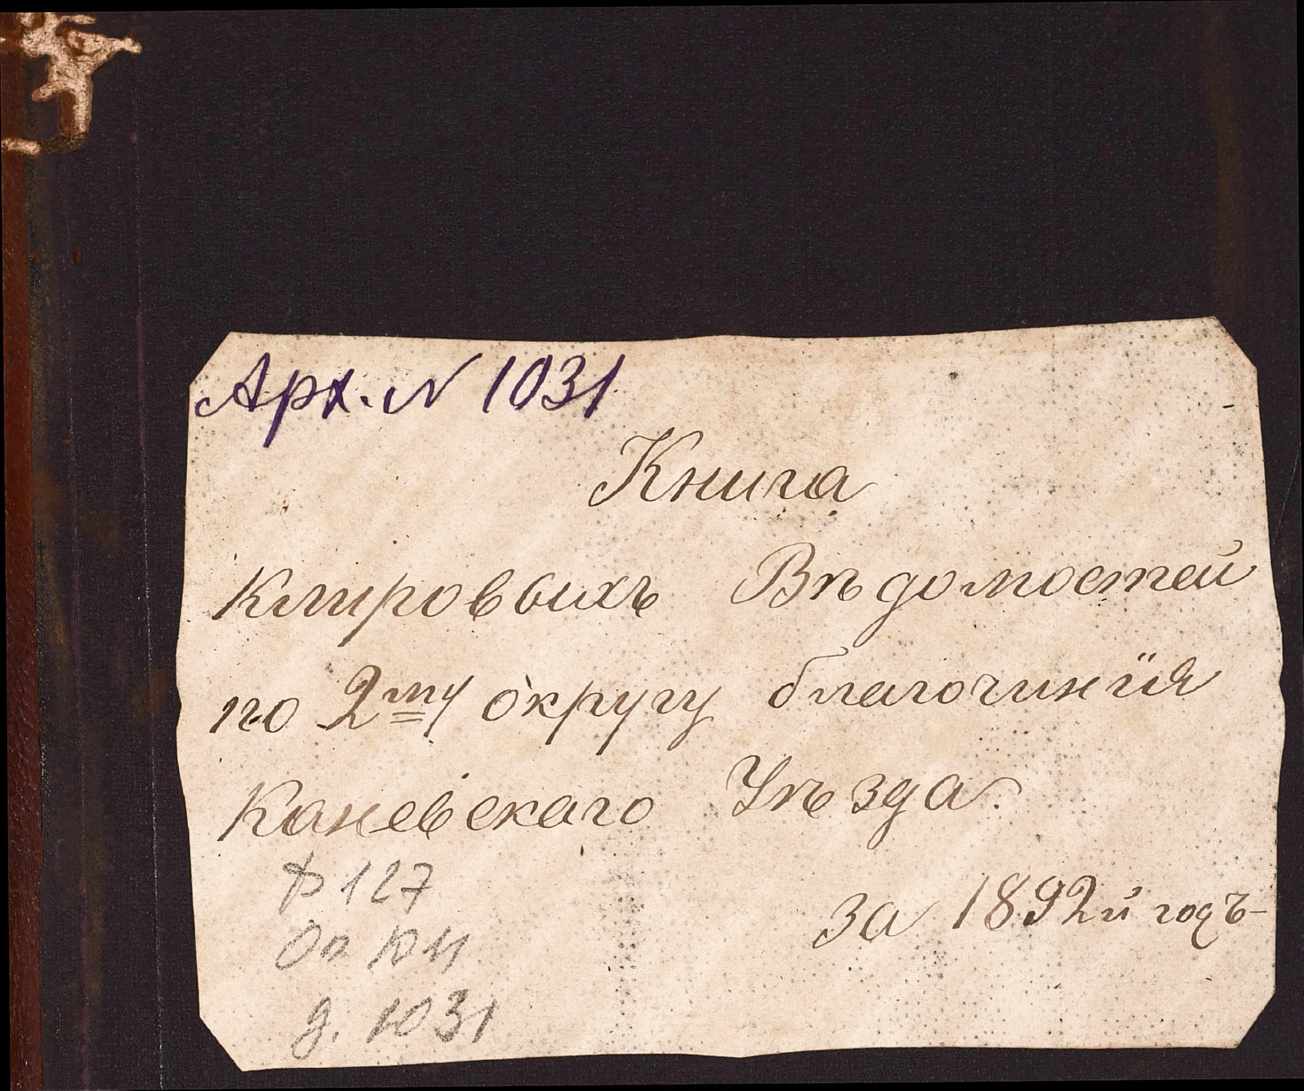 Арх. N 1031
Книга
Клировыхъ Вѣдомостей
по 2му округу благочинія
Каневскаго Уѣзда.
за 1892й годъ
Ф 127
Оп 1011
д. 1031